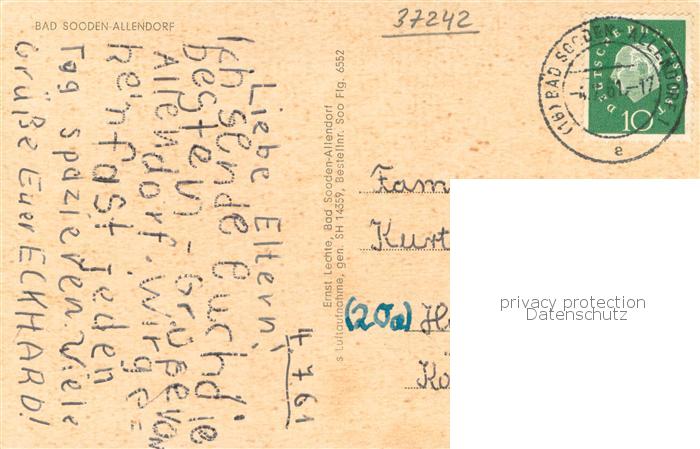 BAD SOODEN-ALLENDORF
37242
4.7.61
Liebe Eltern,
Ich sende Euch die
besten Grüße von
Allendorf. Wir ge=
hen fast jeden
Tag spazieren. Viele
Grüße Euer ECKHARD!
Ernst Lechte, Bad Sooden-Allendorf
s Luftaufnahme, gen. SH 14359, Bestellnr. Soo Flg. 6552
(16) BAD SOODEN-ALLENDORF 1
61-17
a
DEUTSCHE BUNDESPOST
10
Fam
Kurt
(20a) Ha
Kö
privacy protection
Datenschutz